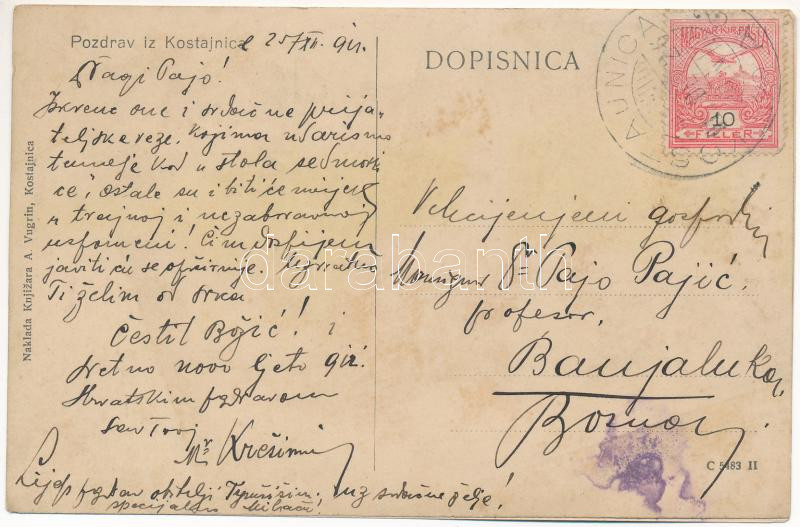 Pozdrav iz Kostajnice 25/XII. 911.
Dragi Pajo!
Iskrene one i srdačne prija-
teljske veze, kojima udarismo
temelje kod „stola sedmori-
ce“, ostale su i biti će mi
u trajnoj i nezaboravnoj
uspomeni! Čim dospijem
javiti ću se opširnije.
Ti želim od srca
Čestit Božić! i
sretno novo ljeto 912.
Hrvatskim pozdravom
Tvoj
Mr Krešimir
Lijep pozdrav obitelji uz srdačne želje!
specijalno
Naklada Knjižara A. Vugrin, Kostajnica
DOPISNICA
MAGYAR·KIR·POSTA
10
FILLÉR
AUNICA
Velecijenjeni gospodin
Dr Pajo Pajić.
profesor,
Banjaluka,
Bosna
C 5483 II
darabanth